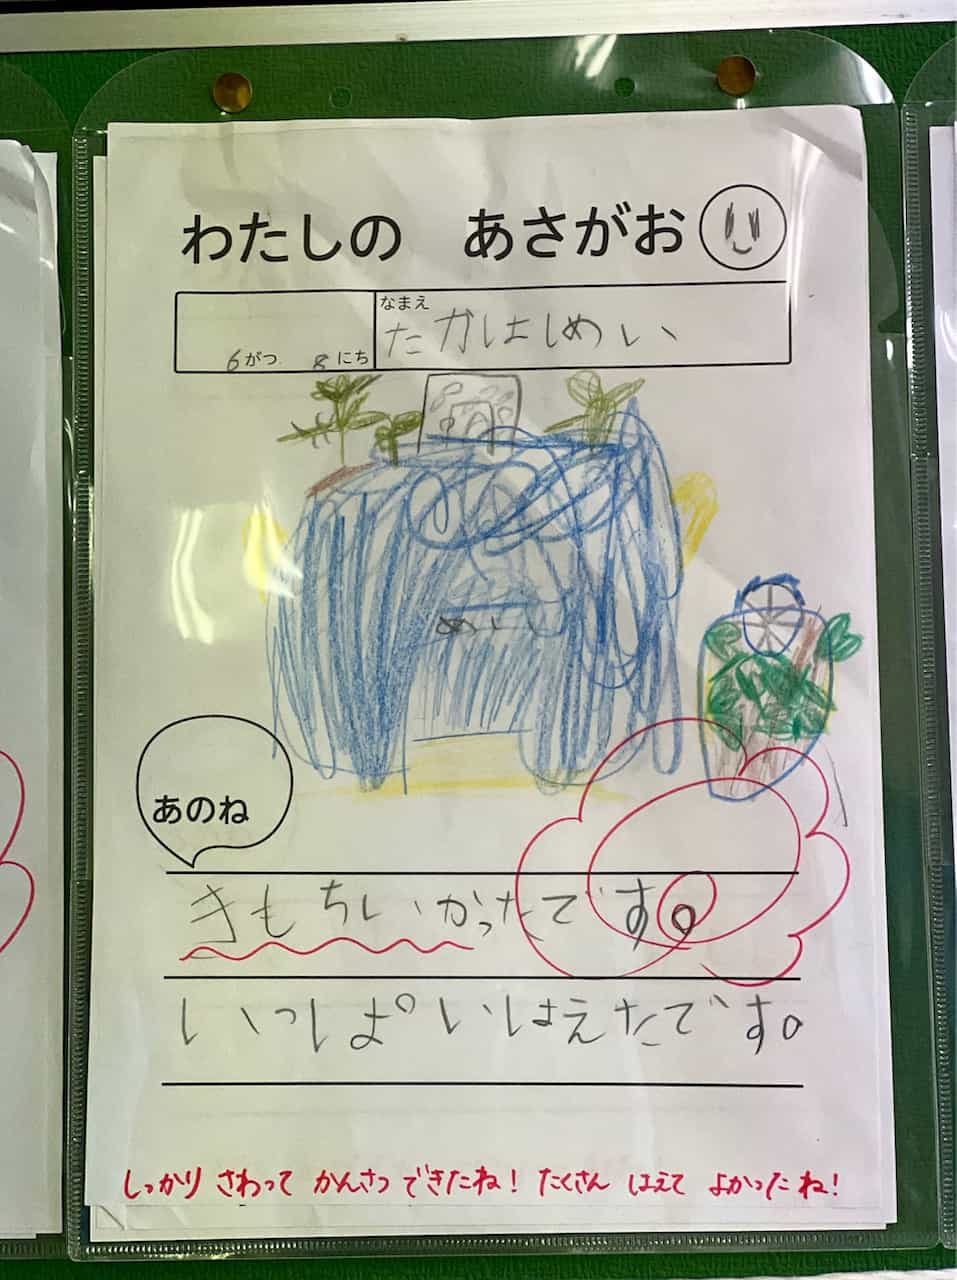 わたしの あさがお
6がつ 8にち
なまえ
たかはしめい
めい
あのね
きもちいかったです。
いっぱいはえたです。
しっかり さわって かんさつ できたね! たくさん はえて よかったね!